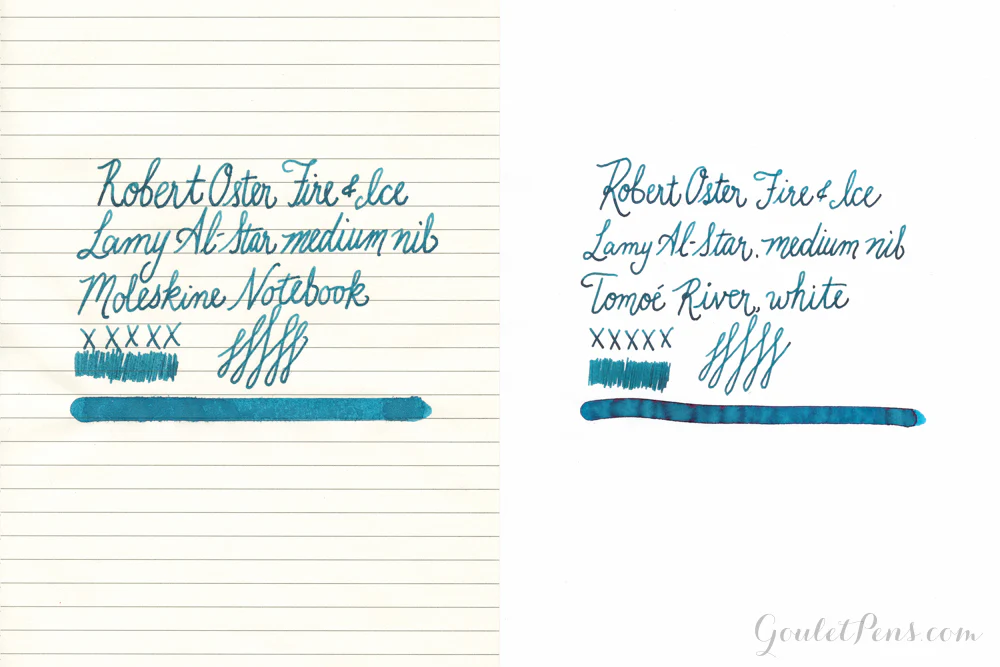 Robert Oster Fire & Ice
Lamy Al-Star medium nib
Moleskine Notebook
X X X X X
Robert Oster Fire & Ice
Lamy Al-Star, medium nib
Tomoé River, white
XXXXX
GouletPens.com